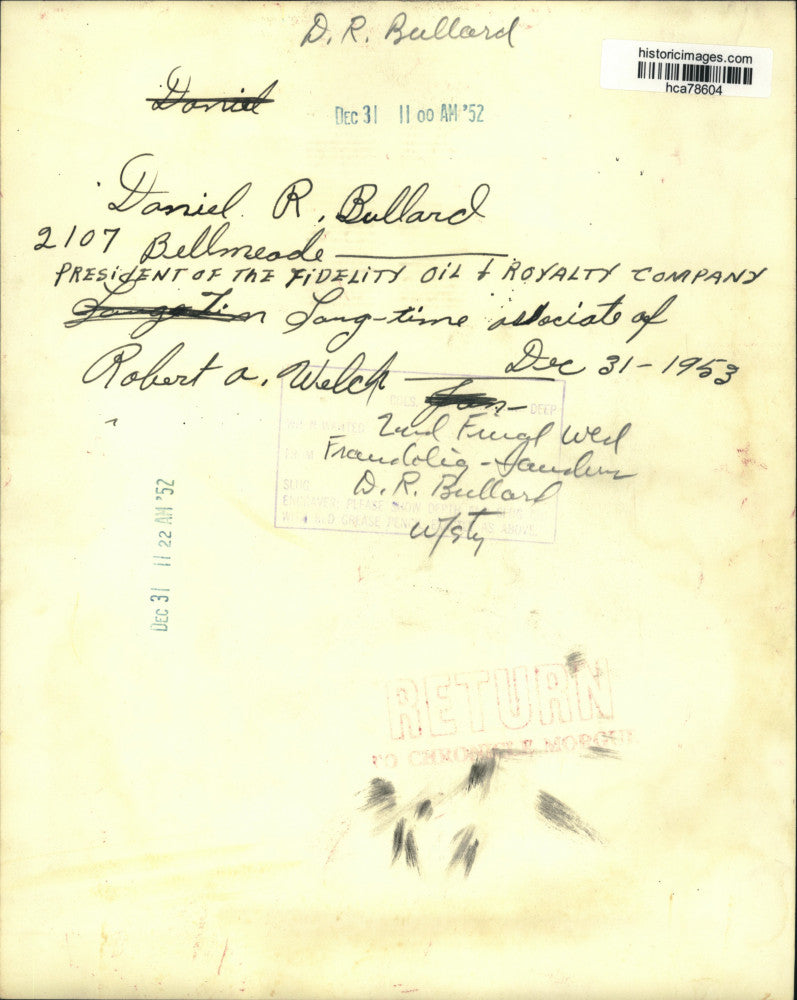 D. R. Bullard
historicimages.com
hca78604
Daniel
DEC 31 11 00 AM '52
Daniel R. Bullard
2107 Bellmeade
PRESIDENT OF THE FIDELITY OIL & ROYALTY COMPANY
Long-time associate of
Robert A. Welch — Dec 31-1953
Jan-
COLS. DEEP
WHEN WANTED 2nd Final Wed
FROM
SLUG D. R. Bullard
ENGRAVER: PLEASE SHOW DEPTH
WITH RED GREASE PENCIL AS ABOVE.
W/sty
DEC 31 11 22 AM '52
RETURN
TO CHRONICLE MORGUE